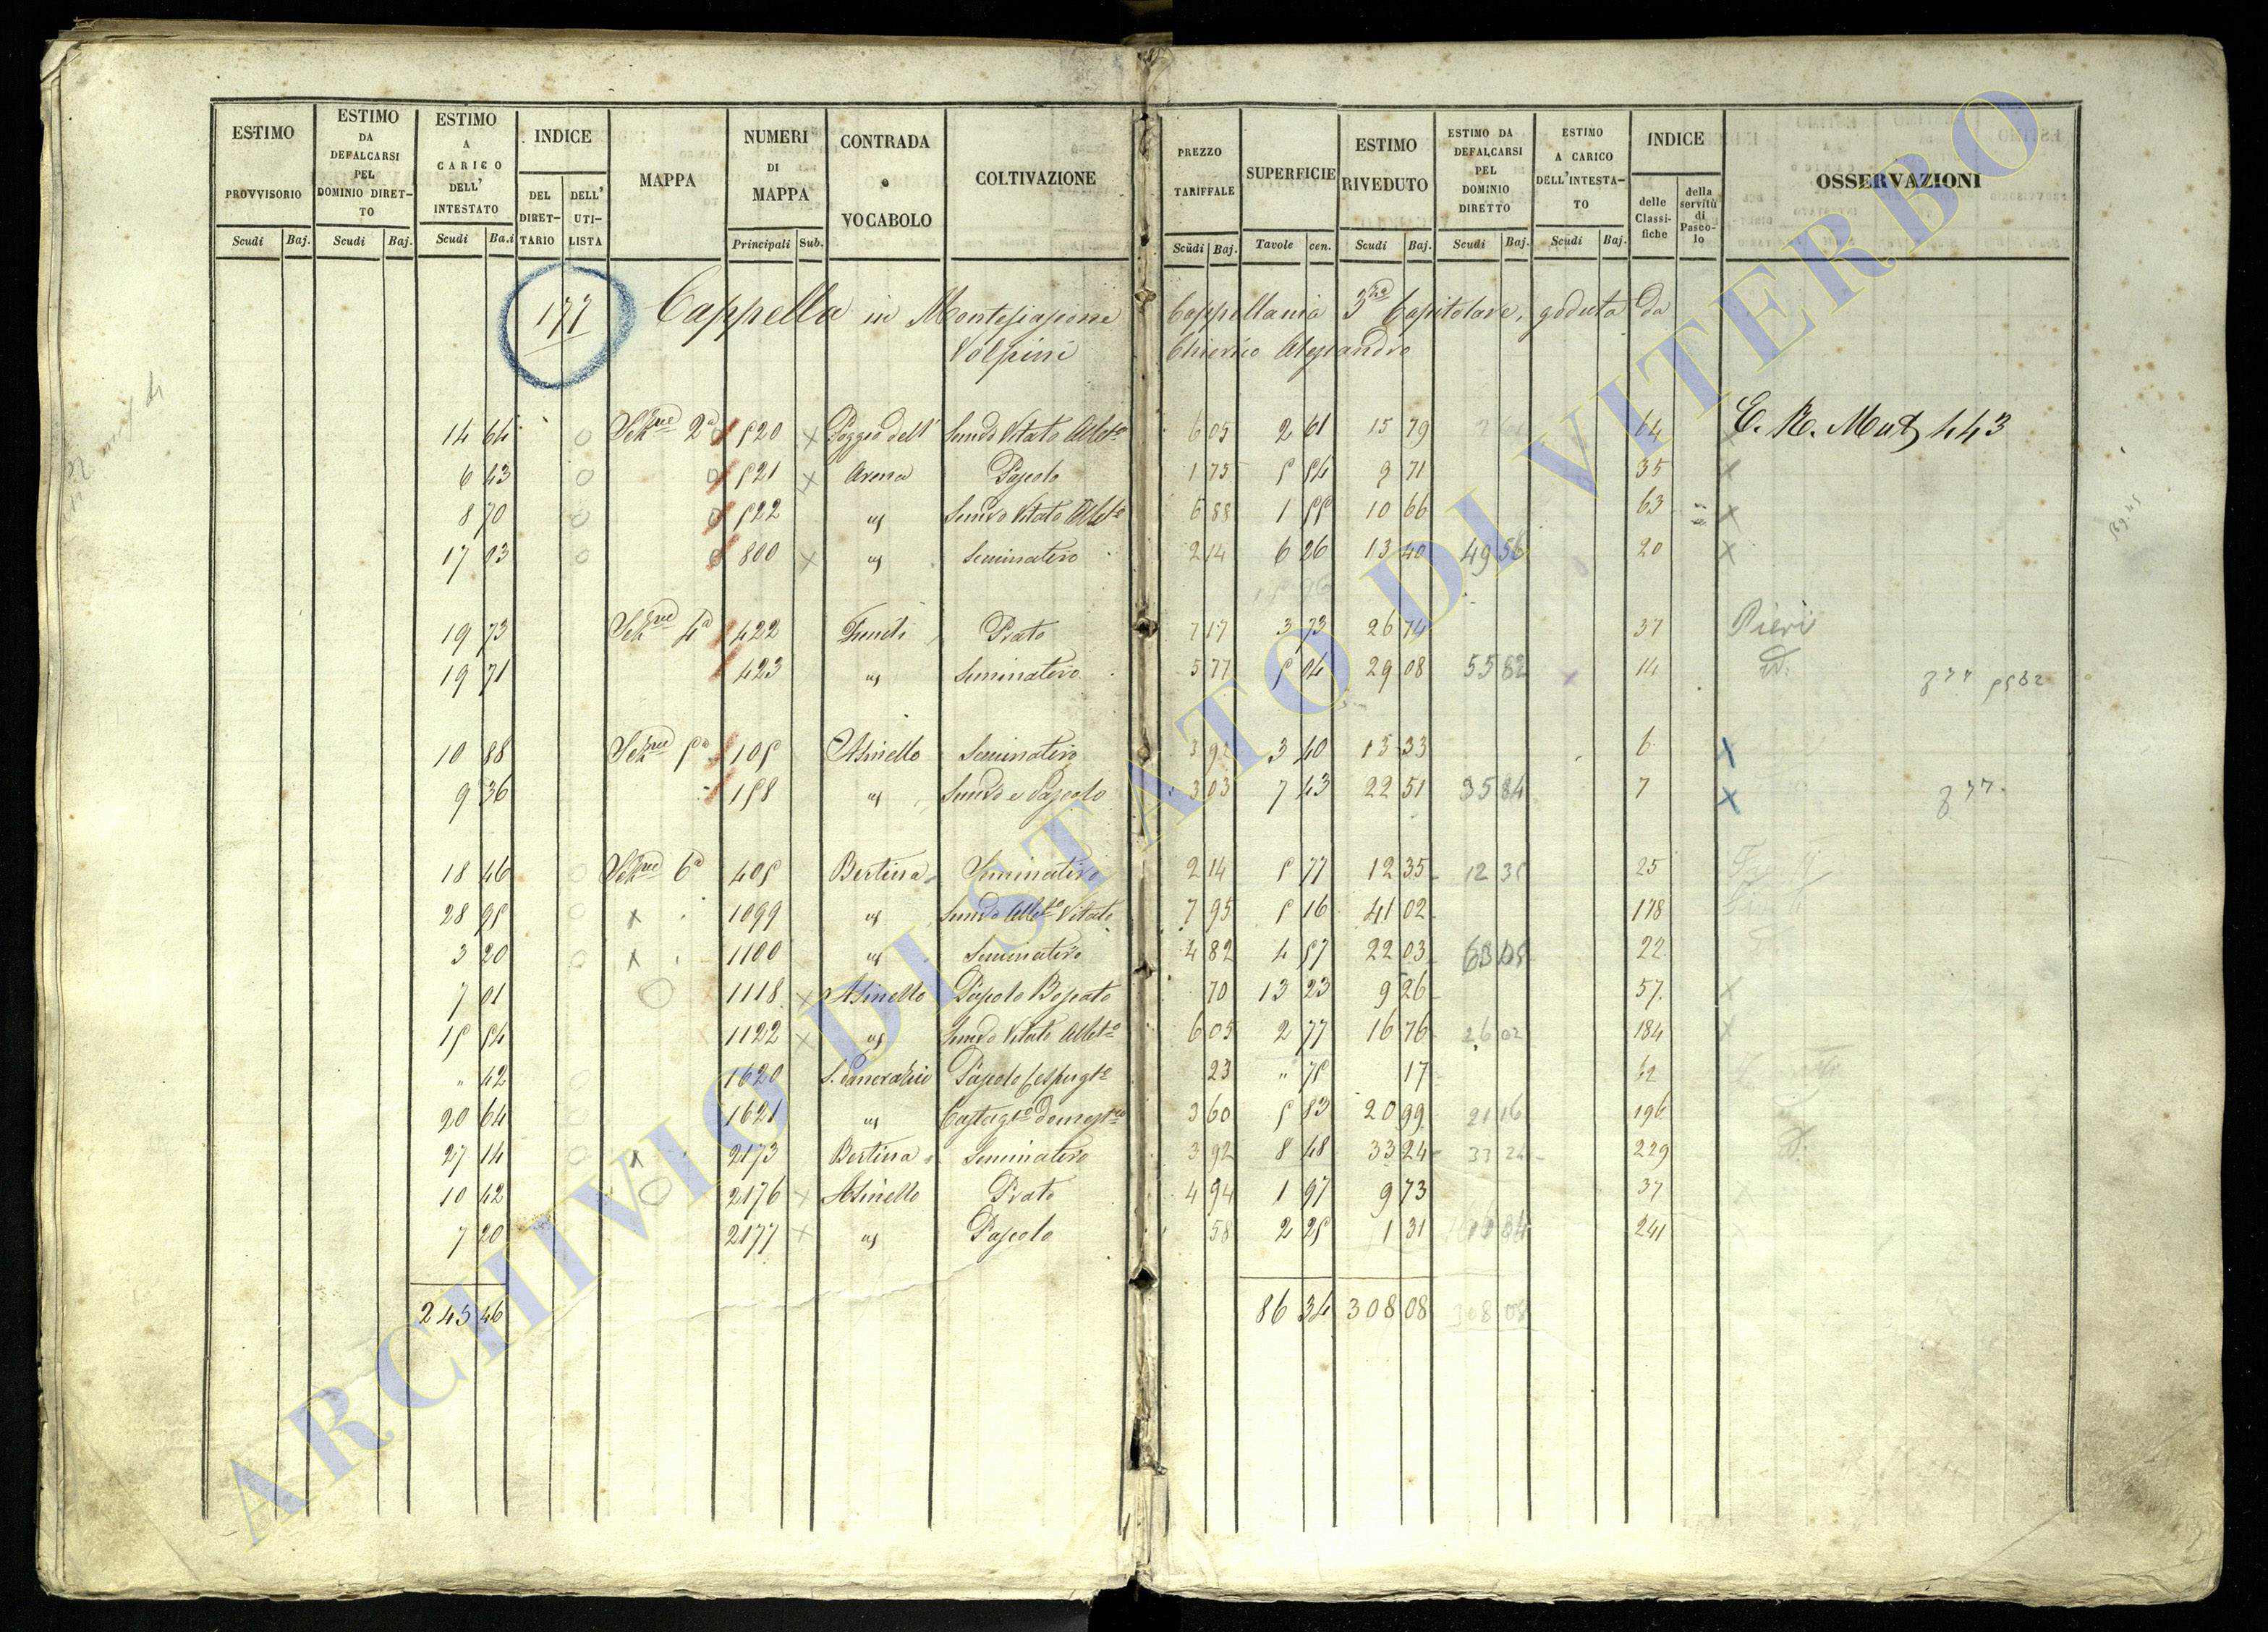 ESTIMO PROVVISORIO Scudi Baj.
ESTIMO DA DEFALCARSI PEL DOMINIO DIRET-TO Scudi Baj.
ESTIMO A CARICO DELL' INTESTATO Scudi Ba.i
INDICE DEL DIRET-TARIO DELL' UTI-LISTA
MAPPA
NUMERI DI MAPPA Principali Sub.
CONTRADA o VOCABOLO
COLTIVAZIONE
PREZZO TARIFFALE Scudi Baj.
SUPERFICIE Tavole cen.
ESTIMO RIVEDUTO Scudi Baj.
ESTIMO DA DEFALCARSI PEL DOMINIO DIRETTO Scudi Baj.
ESTIMO A CARICO DELL'INTESTA-TO Scudi Baj.
INDICE delle Classi-fiche della servitù di Pasco-lo
OSSERVAZIONI
177 Cappella in Montefiascone Cappellania 3za Capitolare, goduta da
Volpini Chierico Alessandro
14 64 Sezne 2a 520 x Poggio dell' Semvo Vitato Albto 6 05 2 61 15 79 64 x C. R. Mat 443
6 43 521 x Arena Pascolo 1 75 5 54 9 71 35 x
8 70 522 " Semvo Vitato Albto 6 88 1 55 10 66 63 x
17 03 800 x " Seminativo 2 14 6 26 13 40 49 56 20 x
19 73 Sezne 4a 422 Fundi Prato 7 17 3 73 26 74 37 Pieri
19 71 423 " Seminativo 5 77 5 04 29 08 55 82 14 id.
10 88 Sezne 5a 105 Asinello Seminativo 3 92 3 40 13 33 6 x
9 36 158 " Semvo e Pascolo 3 03 7 43 22 51 35 84 7 x
18 46 Sezne 6a 405 Bertina Seminativo 2 14 5 77 12 35 12 35 25
28 95 x 1099 " Semvo Albto Vitato 7 95 5 16 41 02 178
3 20 x 1100 " Seminativo 4 82 4 57 22 03 63 05 22
7 01 1118 x Asinello Pascolo Boscato 70 13 23 9 26 57 x
15 54 1122 x " Semvo Vitato Albto 6 05 2 77 16 76 26 02 184 x
" 42 1620 S. Pancrazio Pascolo Cespugto 23 " 75 17 62
20 64 1621 " Castagto domesco 3 60 5 83 20 99 21 16 196
27 14 x 2173 Bertina Seminativo 3 92 8 48 33 24 33 24 229
10 42 2176 x Asinello Prato 4 94 1 97 9 73 37
7 20 2177 x " Pascolo 58 2 25 1 31 241
243 46 86 34 308 08 308 08
ARCHIVIO DI STATO DI VITERBO